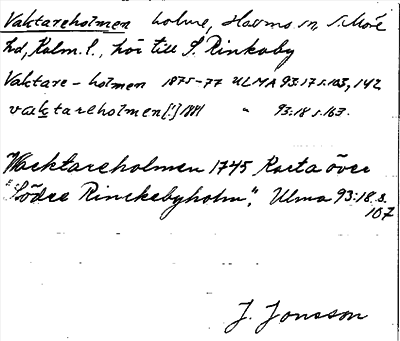 Vaktareholmen holme, Havms sn, S. Möre
hd, Kalm. l., hör till S. Rinkaby
Vaktare-holmen 1875-77 ULMA 93:17 s. 103, 142
vaktareholmen [!] 1881 " 93:18 s. 163.
Wacktareholmen 1745 Karta över
"Södre Rinckebyholm", Ulma 93:18 s.
107
J. Jonsson